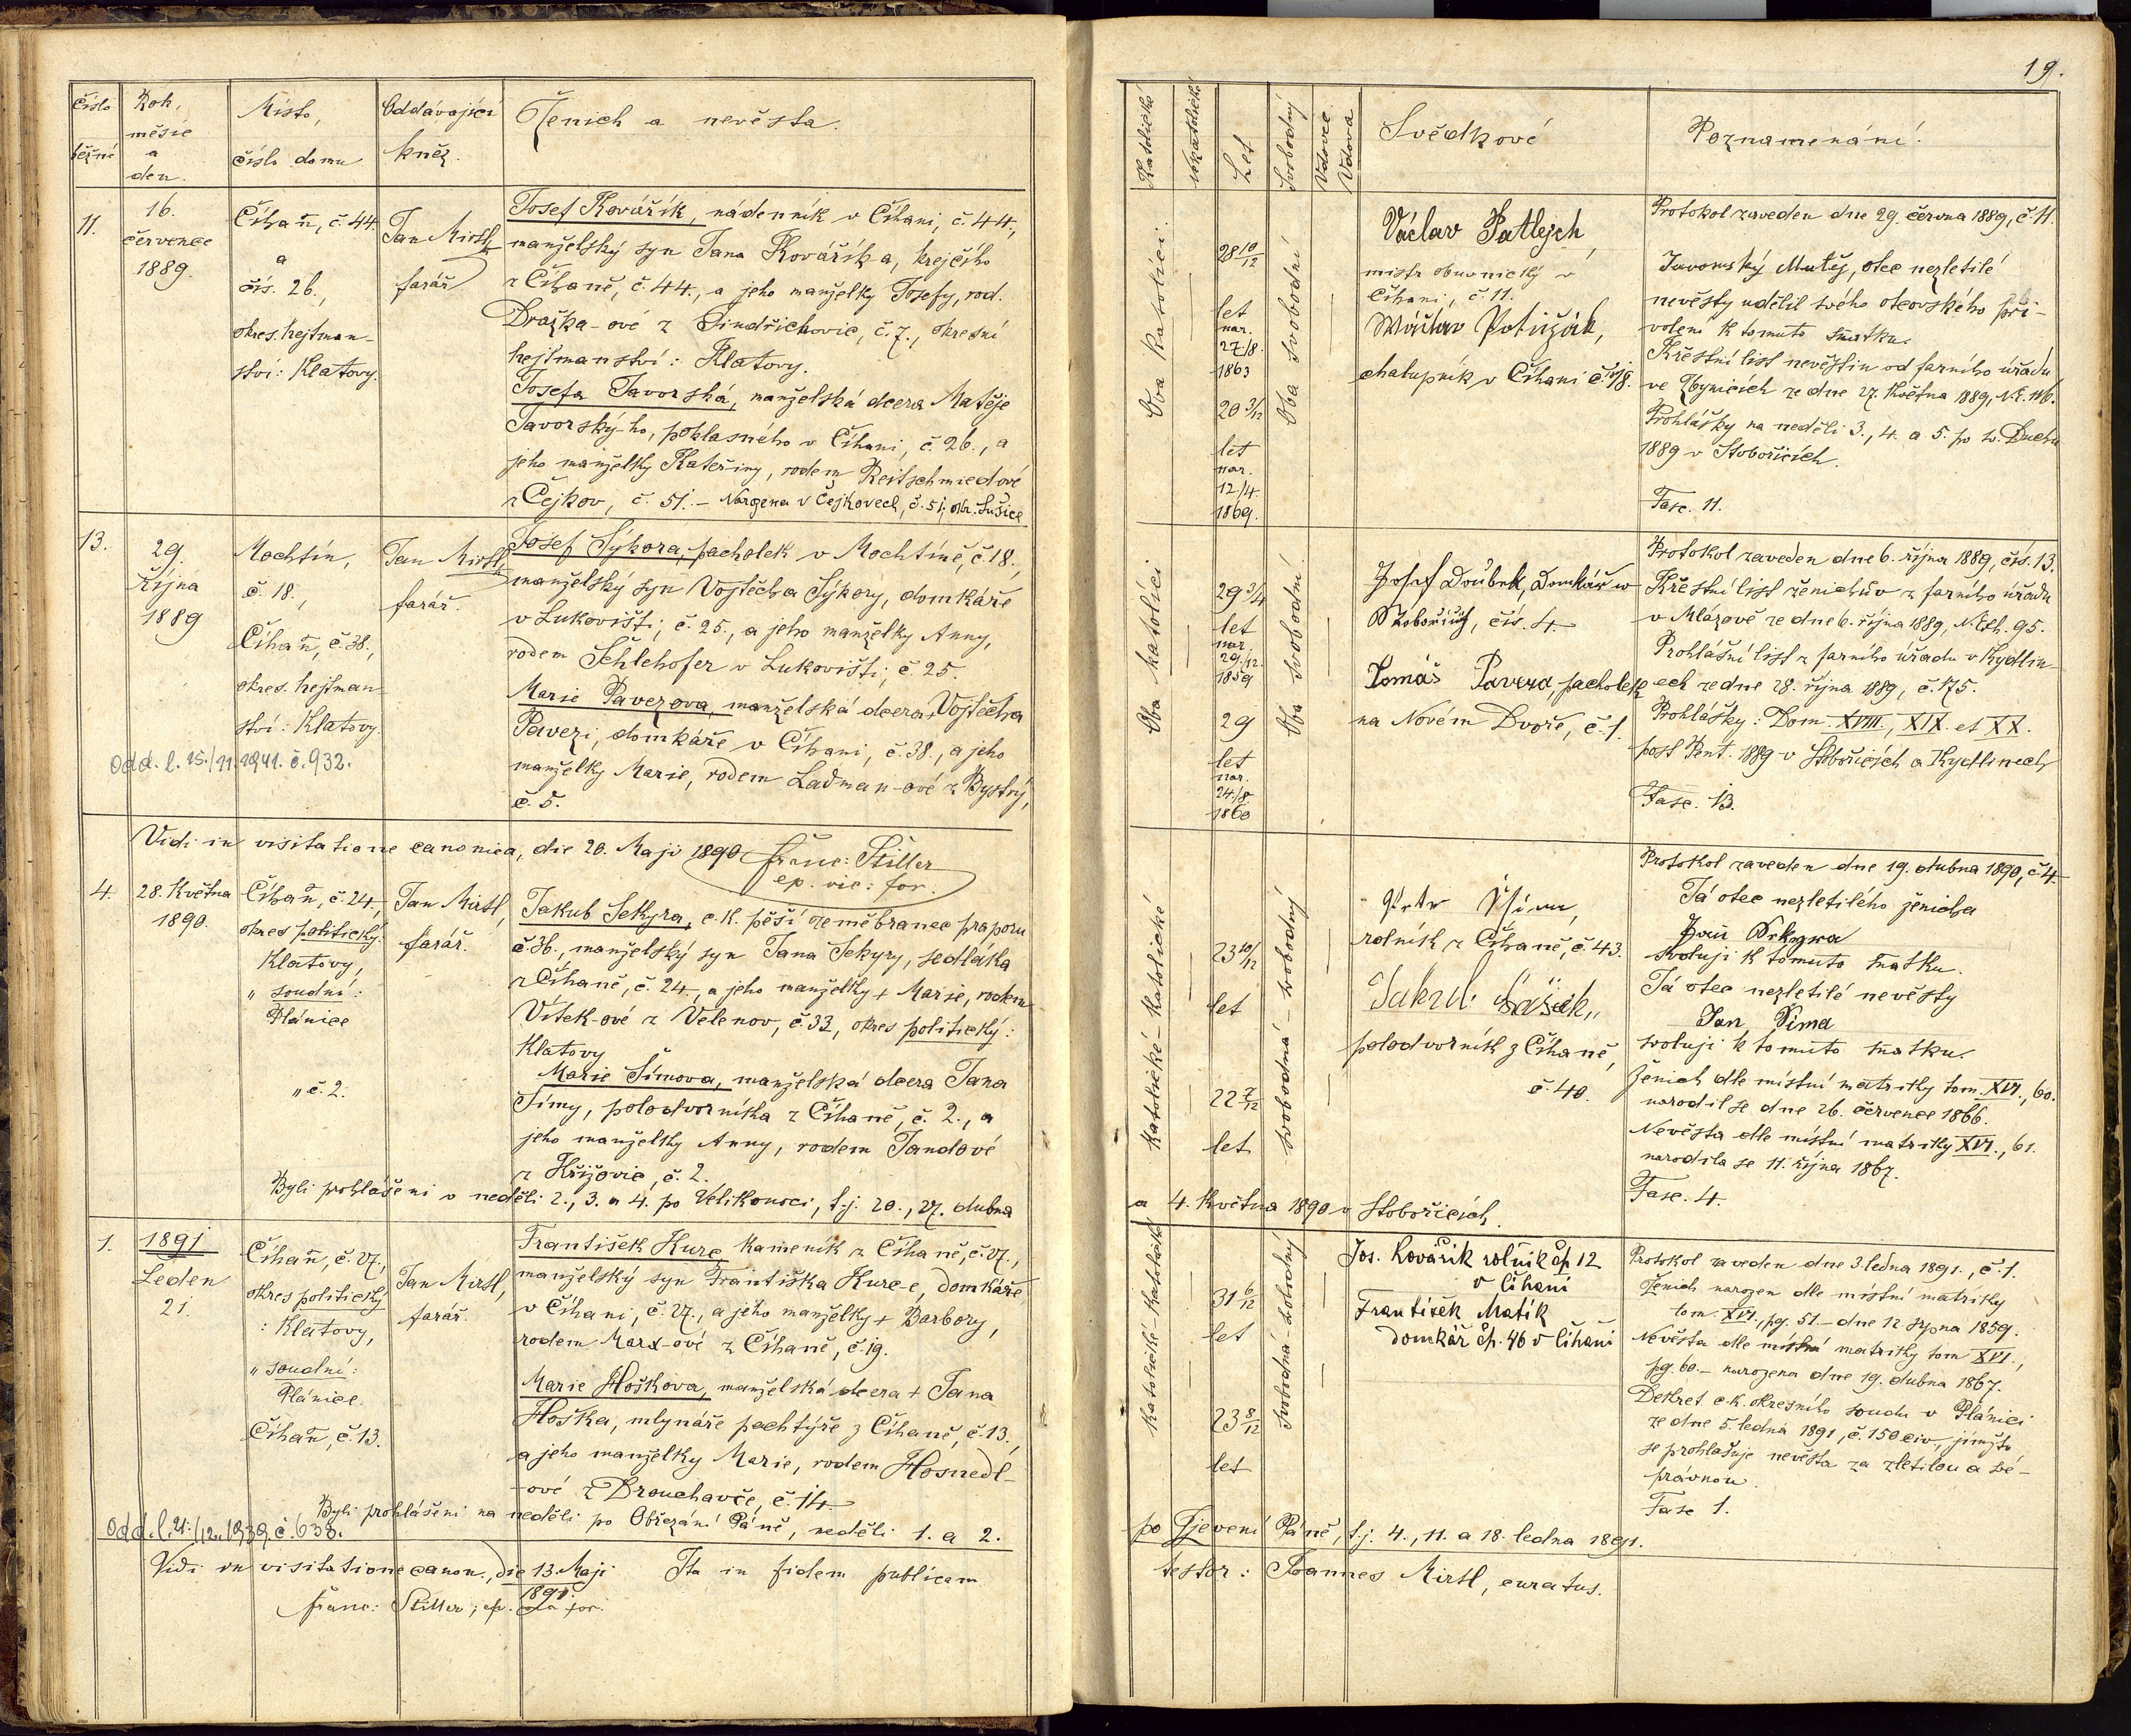 19.
Číslo běžné
Rok, měsíc a den.
Místo, číslo domu
Oddávající kněz.
Ženich a nevěsta.
Katolické
nekatolické
Let
Svobodný
Vdovec
Vdova
Svědkové
Poznamenání.
11.
16.
července
1889.
Číhaň, č. 44.
a
čís. 26.,
okres. hejtman-
ství: Klatovy.
Jan Mirtl,
farář
Josef Kovářík, nádenník v Číhani, č. 44.,
manželský syn Jana Kovářík a, krejčího
z Číhaně, č. 44., a jeho manželky Josefy, rod.
Dražka-ové z Jindřichovic, č. 7., okresní
hejtmanství: Klatovy.
Josefa Javorská, manželská dcera Matěje
Javorský-ho, poklasného v Číhani, č. 26., a
jeho manželky Kateřiny, rodem Reitschmiedové
z Čejkov, č. 51. – Narozena v Čejkovech, č. 51, okr. Sušice
Oba katolíci.
28 10/12
let
nar.
27/8.
1863
20 3/12
let
nar.
12/4.
1869.
Oba svobodní
Václav Patlejch,
mistr obuvnický v
Číhani, č. 11.
chalupník v Číhani č. 18.
Protokol zaveden dne 29. června 1889, č. 11.
Javorský Matěj, otec nezletilé
nevěsty udělil svého otcovského při-
volení k tomuto sňatku.
Křestní list nevěstin od farního úřadu
ve Zbynicích ze dne 27. května 1889, N.E. 116.
Prohlášky na neděli 3., 4. a 5. po sv. Duchu
1889 v Stobořicích.
Fasc. 11.
13.
29.
října
1889
Mochtín,
č. 18.,
Číhaň, č. 38.,
okres. hejtman-
ství: Klatovy.
Odd. l. 25./11. 1941. č. 932.
Jan Mirtl,
farář.
Josef Sýkora, pacholek v Mochtíně, č. 18.,
manželský syn Vojtěcha Sýkory, domkáře
v Lukovišti, č. 25., a jeho manželky Anny,
rodem Schlehofer v Lukovišti, č. 25.
Marie Pavezova, manželská dcera Vojtěcha
Pavezi, domkáře v Číhani, č. 38., a jeho
manželky Marie, rodem Ladman-ové z Bystrý,
č. 5.
Oba katolíci
29 3/4
let
nar.
29./12.
1859
29
let
nar.
24./8.
1860
Oba svobodní.
Josef Doubek, Domkář w
Stobořicích, čís. 4.
Tomáš Paveza, pacholek
na Novém Dvoře, č. 1.
Protokol zaveden dne 6. října 1889, čís. 13.
Křestní list ženichův z farního úřadu
v Mlázově ze dne 6. října 1889, N. Exh. 95.
Prohlášní list z farního úřadu v Kydlin-
ech ze dne 28. října 1889, č. 175.
Prohlášky: Dom. XVIII., XIX. et XX.
post Pent. 1889 v Stobořicích a Kydlinech
Fasc. 13.
Vidi in visitatione canonica, die 20. Maji 1890 Franc: Stiller
ep. vic: for.
4.
28. Května
1890.
Číhaň, č. 24.,
okres politický:
Klatovy,
„ soudní:
Plánice
„ č. 2.
Jan Mirtl,
farář.
Jakub Sekyra, c. k. pěší zeměbranec praporu
č. 36., manželský syn Jana Sekyry, sedláka
z Číhaně, č. 24., a jeho manželky + Marie, rodem
Vítek-ové z Velenov, č. 33, okres politický:
Klatovy
Marie Šímova, manželská dcera Jana
Šímy, polodvorníka z Číhaně, č. 2., a
jeho manželky Anny, rodem Jandové
z Křižovic, č. 2.
Byli prohlášeni v neděli 2., 3. a 4. po Velikonoci, t. j. 20., 27. dubna
a 4. května 1890 v Stobořicích.
Katolické – Katolické
23 10/12
let
22 7/12
let
svobodná – svobodný
Petr Šíma,
rolník z Číhaně, č. 43.
Jakub
polodvorník z Číhaně,
č. 40.
Protokol zaveden dne 19. dubna 1890, č. 4.
Já otec nezletilého ženicha
Jan Sekyra
svoluji k tomuto sňatku.
Já otec nezletilé nevěsty
Jan Šima
svoluji k tomuto sňatku
Ženich dle místní matriky tom. XVI., 60.
narodil se dne 26. července 1866.
Nevěsta dle místní matriky XVI., 61.
narodila se 11. října 1867.
Fasc. 4.
1.
1891
Leden
21.
Číhaň, č. 27.,
okres politický
: Klatovy,
„ soudní:
Plánice.
Číhaň, č. 13.
Jan Mirtl,
farář.
František Kurc, kameník z Číhaně, č. 27.,
manželský syn Františka Kurc-e, domkáře
v Číhani, č. 27., a jeho manželky + Barbory,
rodem Marx-ové z Číhaně, č. 19.
Marie Hoškova, manželská dcera + Jana
Hoška, mlynáře pachtýře z Číhaně, č. 13.,
a jeho manželky Marie, rodem Hosnedl-
-ové z Drouhavče, č. 14.
Byli prohlášeni na neděli po Obřezání Páně, neděli 1. a 2.
po Zjevení Páně, t. j. 4., 11. a 18. ledna 1891.
Odd. l. 21./12. 1939, č. 638.
Katolické – Katolické
31 6/12
let
23 8/12
let
Svobodná – svobodný
Jos. Kovářík rolník čp 12
v Číhani
František Matík
domkář čp. 46 v Číhani
Protokol zaveden dne 3. ledna 1891., č. 1.
Ženich narozen dle místní matriky
tom. XVI., pg. 51. – dne 12. srpna 1859.
Nevěsta dle místní matriky tom XVI.,
pg. 60. – narozena dne 19. dubna 1867.
Dekret c. k. okresního soudu v Plánici
ze dne 5. ledna 1891, č. 150 civ., jímžto
se prohlašuje nevěsta za zletilou a své-
právnou.
Fasc 1.
Vidi in visitatione canon., die 13. Maji 1891. Ita in fidem publicam
testor: Joannes Mirtl, curatus.
Franc: Stiller, ep. vic for.